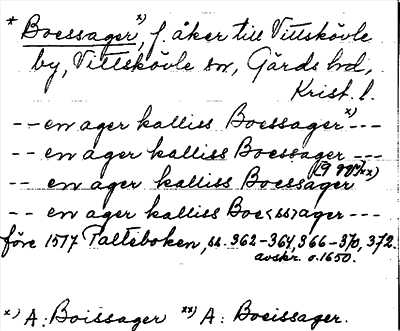 * Boessager x), f. åker till Vittskövle
by, Vittskövle sn, Gärds hd,
Krist. l.
-- en ager kalliss Boessager x) ---
-- en ager kalliss Boessager ---
-- en ager kalliss Boessager xx)
-- en ager kalliss Boe<ss>ager ---
före 1517 Palteboken, ss. 362-364, 366-370, 372.
avskr. o. 1650.
x) A: Boissager xx) A: Boeissager.